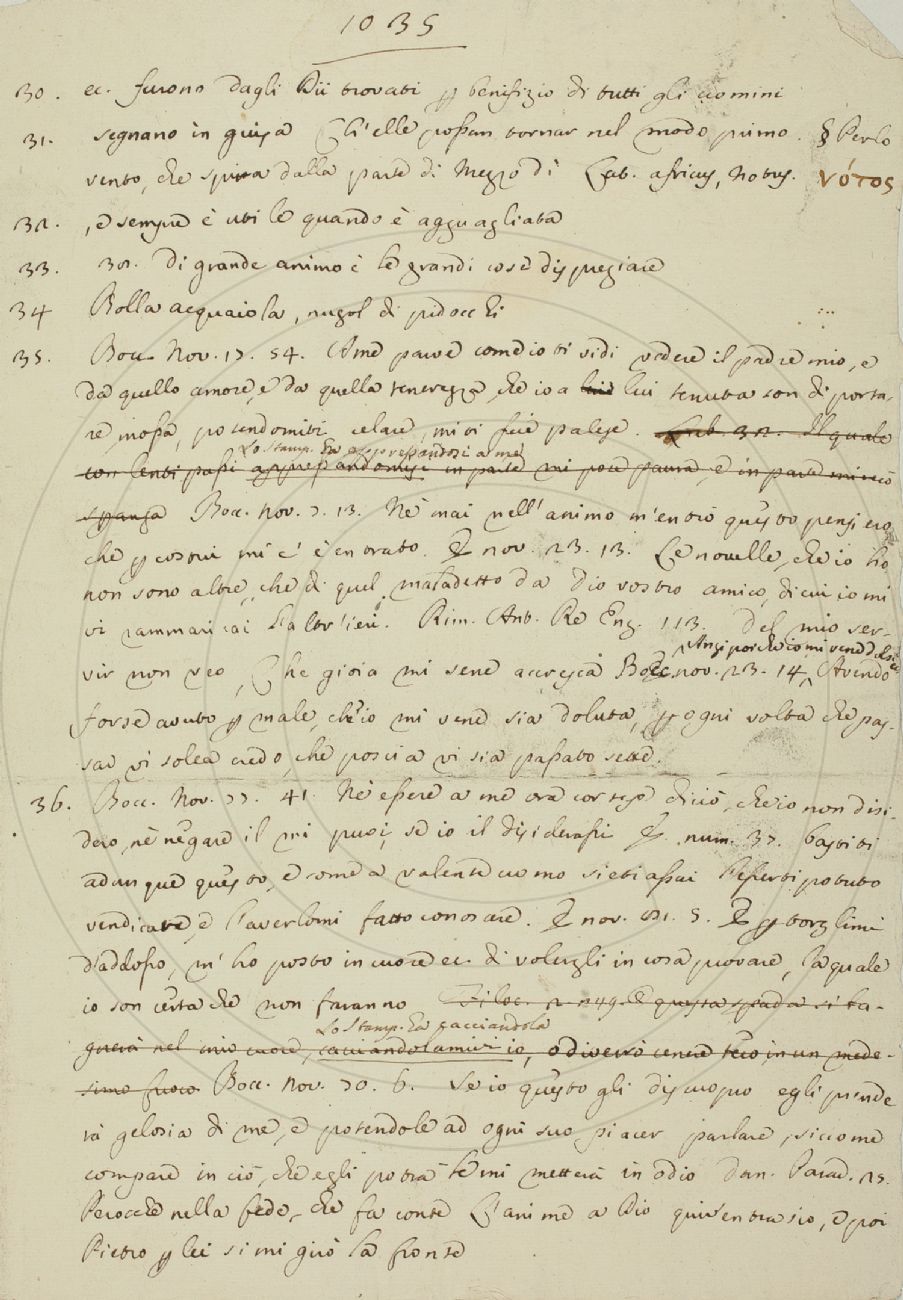 1035
30. ec. furono dagli Dii trovati p benifizio di tutti gli uomini
31. segnano in guisa Ch'elle possan tornar nel modo primo. § Perlo
vento, che spira dalla parte di Mezzo dì Lat. africus, notus. νότος
32. , e sempre è utile quando è agguagliata
33. 30. Di grande animo è le grandi cose dispregiare
34 Bolla acquaiola, nugol di pidocchi
35. Bocc. Nov. 17. 54. Ame parve comedio ti vidi vedere il padre mio, e
da quello amore, e da quella tenerezza, che io a lui lui tenuta son di porta-
re, mossa, potendomiti celare, miti feci palese. Lab. 32. Il quale
Lo Stamp. ha appressandosi a me
con lenti passi appressandomisi in parte mi porse paura, e in parte mi recò
speranza Bocc. Nov. 7. 13. Nè mai nell'animo m'entrò questo pensiero
che p costui mi c'è entrato. E nov. 23. 13. Le novelle, che io ho
non sono altre, che di quel maladetto da Dio vostro amico, di cui io mi
vi rammaricai l'altr'ieri. Rim. Ant. Re Enz. 113. Del mio ser-
vir non veo, Che gioia mi sene accresca Bocc. nov. 23. 14. Avendo
Anzi poi che io mi vene dolsi
forse avuto p male, che io mi vene sia doluta, p ogni volta che pas-
sar vi solea credo, che poscia vi sia passato sette.
36. Bocc. Nov. 77. 41. Nè essere a me ora cortese di ciò, che io non disi-
dero, nè negare il mi puoi, se io il disiderassi E num. 37. bastiti
adunque questo, e come a valente uomo sieti assai l'esserti potuto
vendicare, e l'averlomi fatto conoscere. E nov. 81. 5. E p torglimi
d'addosso, m'ho posto in cuore ec. di volergli in cosa provare, la quale
io son certa che non faranno Filoc. 2. 249. E questa spada si ba-
Lo Stamp. ha cacciandola
gnerà nel mio cuore, cacciandolamivi io, o diverrò cenere teco in un mede-
simo fuoco Bocc. Nov. 70. 6. Se io questo gli discuopro egli prende
rà gelosia di me, e potendole ad ogni suo piacer parlare, siccome
compare in ciò, che egli potrà le mi metterà in odio Dan. Parad. 25.
Perocchè nella fede, che fa conte L'anime a Dio quiv'entra'io, e poi
Pietro p lei si mi girò la fronte